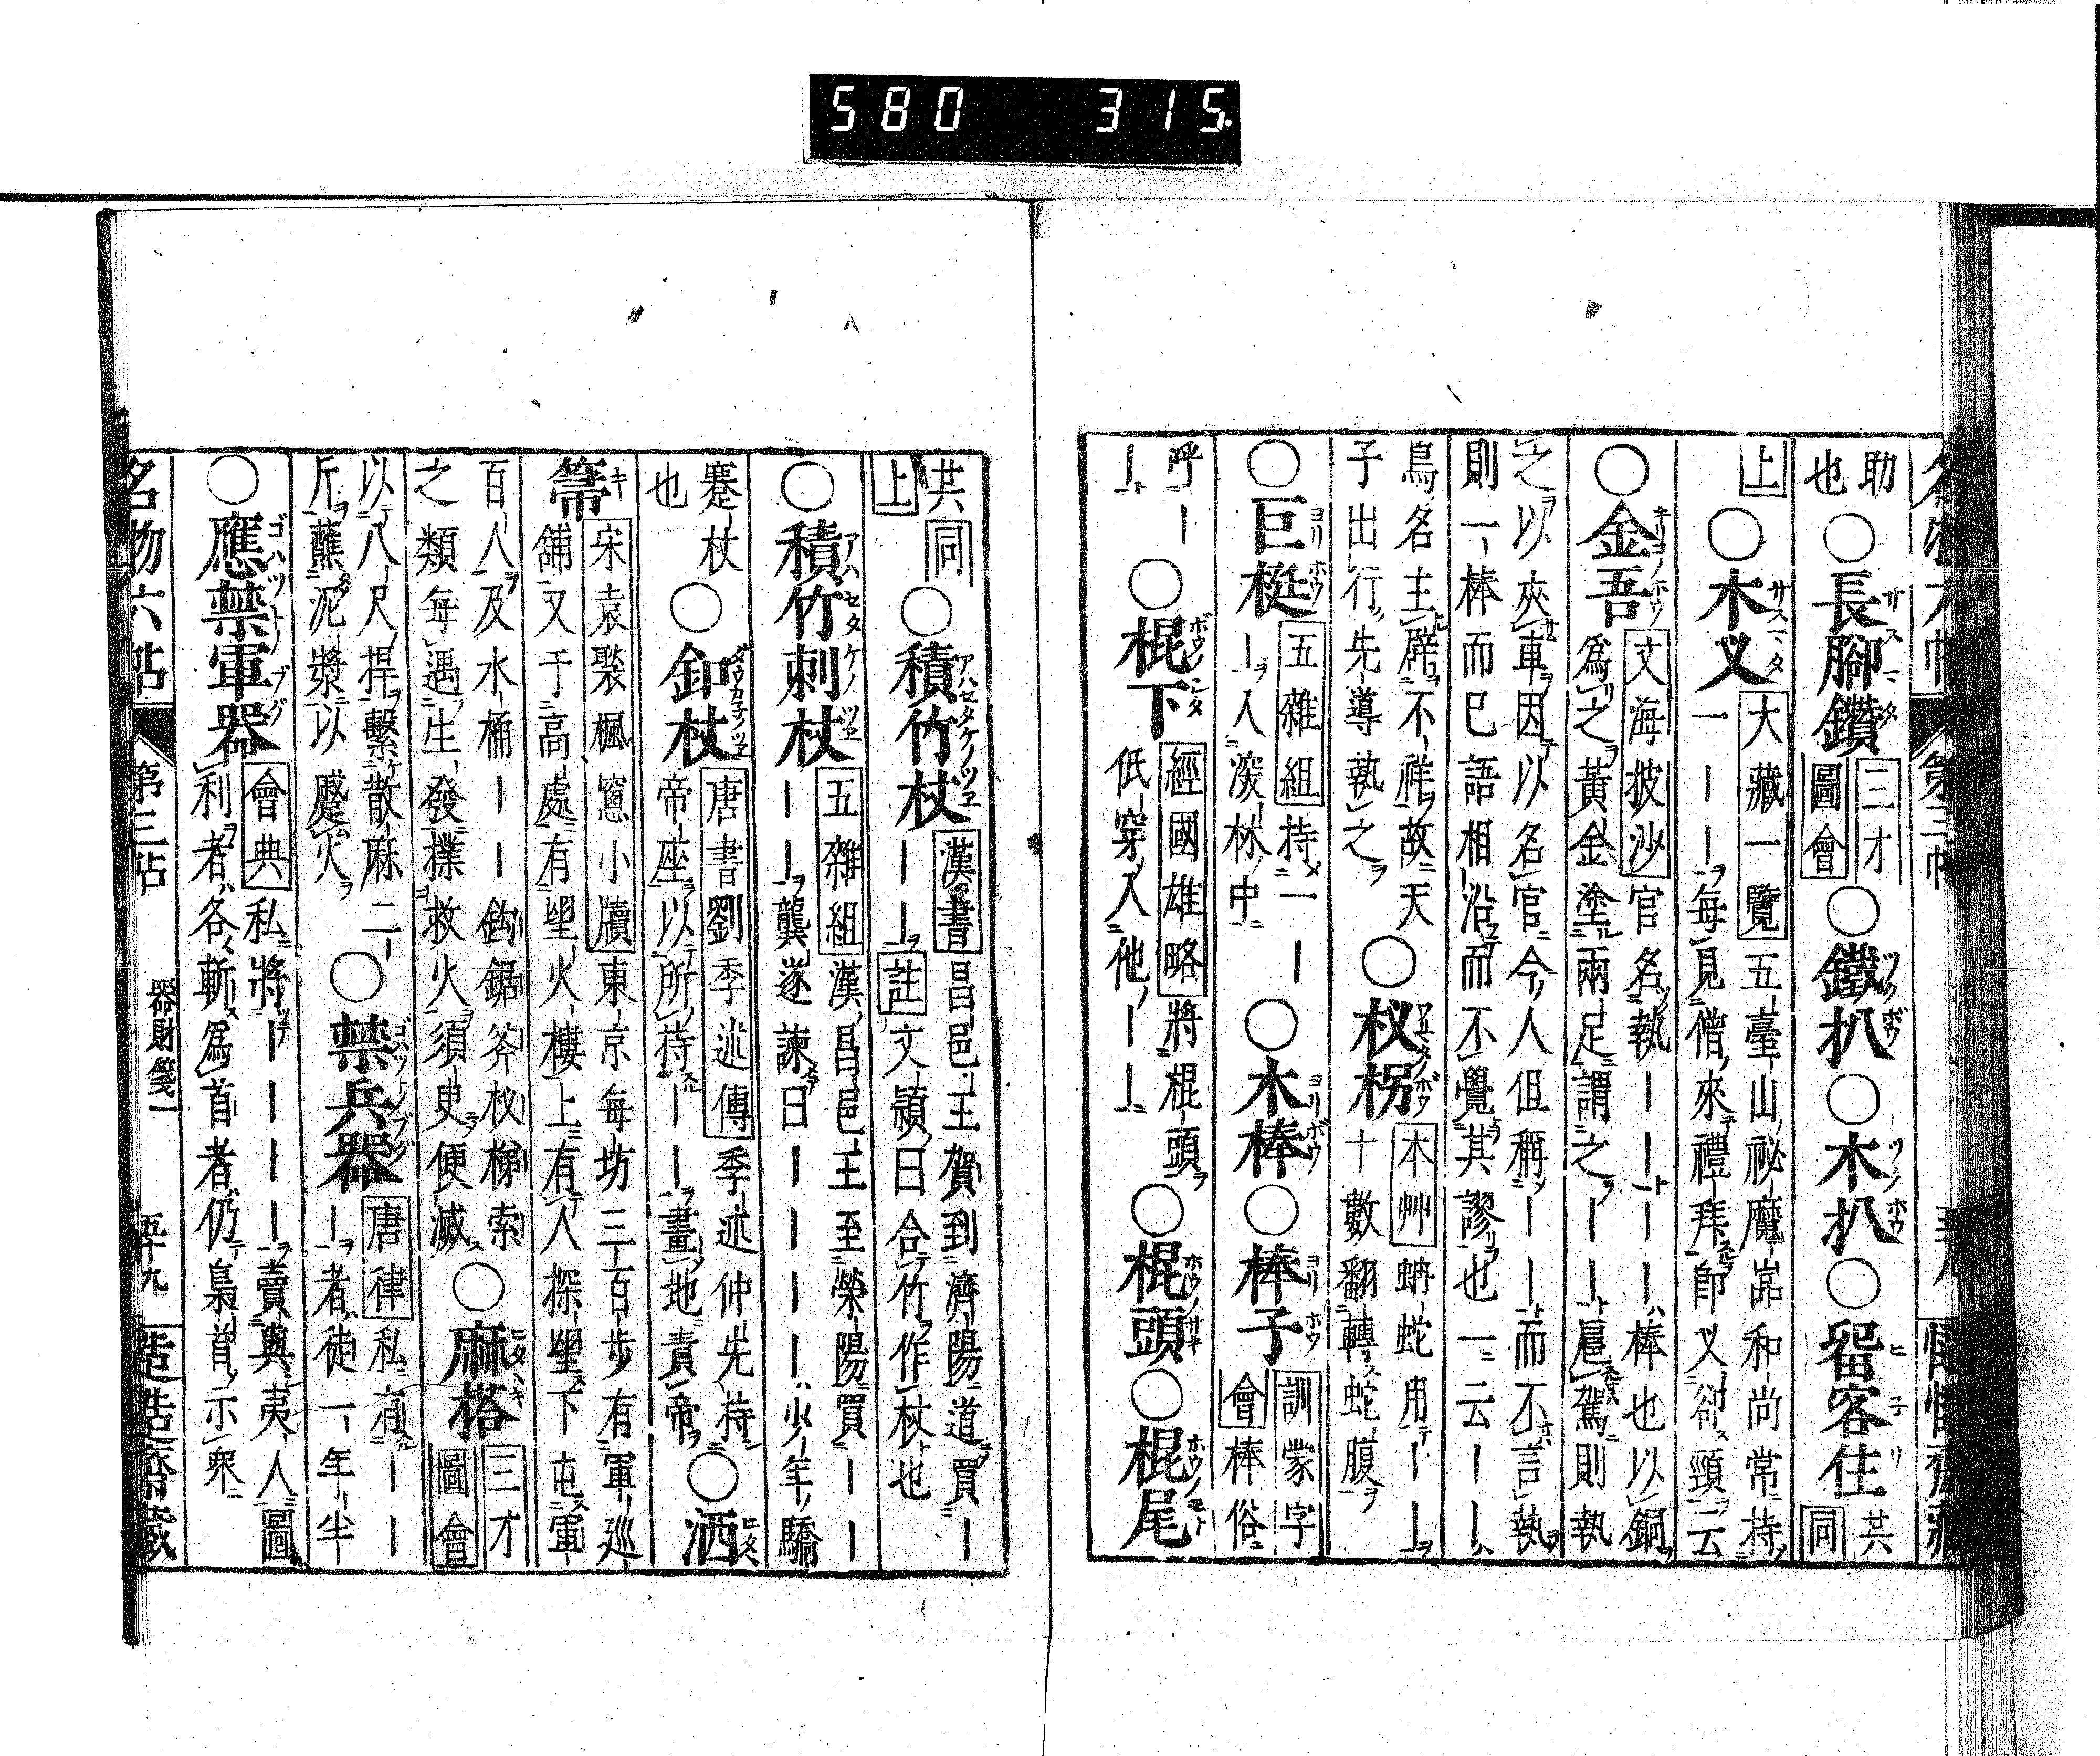 580 315
助
也
○長腳鑽 三才
圖會
○鐵扒○木扒○畱客住 共
同
上
○木叉 大藏一覽五臺山祕魔嵓和尚常持
一｜｜每見僧來禮拜即叉卻頸云
○金吾 文海披沙官名執｜｜｜｜棒也以銅
爲之黃金塗兩足謂之｜｜扈駕則執
之以夾車因以名官今人但稱｜｜而不言執
則一棒而已語相沿而不覺其謬也一云｜｜
鳥名主辟不祥故天
子出行先導執之
○杈枴 本艸蚺蛇用｜｜
十數翻轉蛇腹
○巨梃 五雜組持一｜
｜入深林中
○木棒○棒子 訓蒙字
會棒俗
呼｜
｜
○棍下 經國雄略將棍頭
低穿入他｜｜
○棍頭○棍尾
共
上
同
○積竹杖 漢書昌邑王賀到濟陽道買｜
｜｜註文頴曰合竹作杖也
○積竹刺杖 五雜組漢昌邑王至榮陽買｜｜
｜｜龔遂諫曰｜｜｜｜少年驕
蹇杖
也
○釦杖 唐書劉季述傳季述仲先持
帝座以所持｜｜畫地責帝
○洒
箒 宋袁褧楓窻小牘東京每坊三百步有軍巡
舖又于高處有塱火樓上有人探塱下屯軍
百人及水桶｜｜鈎鋸斧杈梯索
之類每遇生發撲救火須臾便滅
○麻搭 三才
圖會
以八尺捍繫散麻二
斤蘸泥漿以蹙火
○禁兵器 唐律私有｜｜
｜者徒一年半
○應禁軍器 會典私將｜｜｜｜賣與夷人圖
利者各斬爲首者仍梟首示衆
名物六帖
第三帖
器財箋一